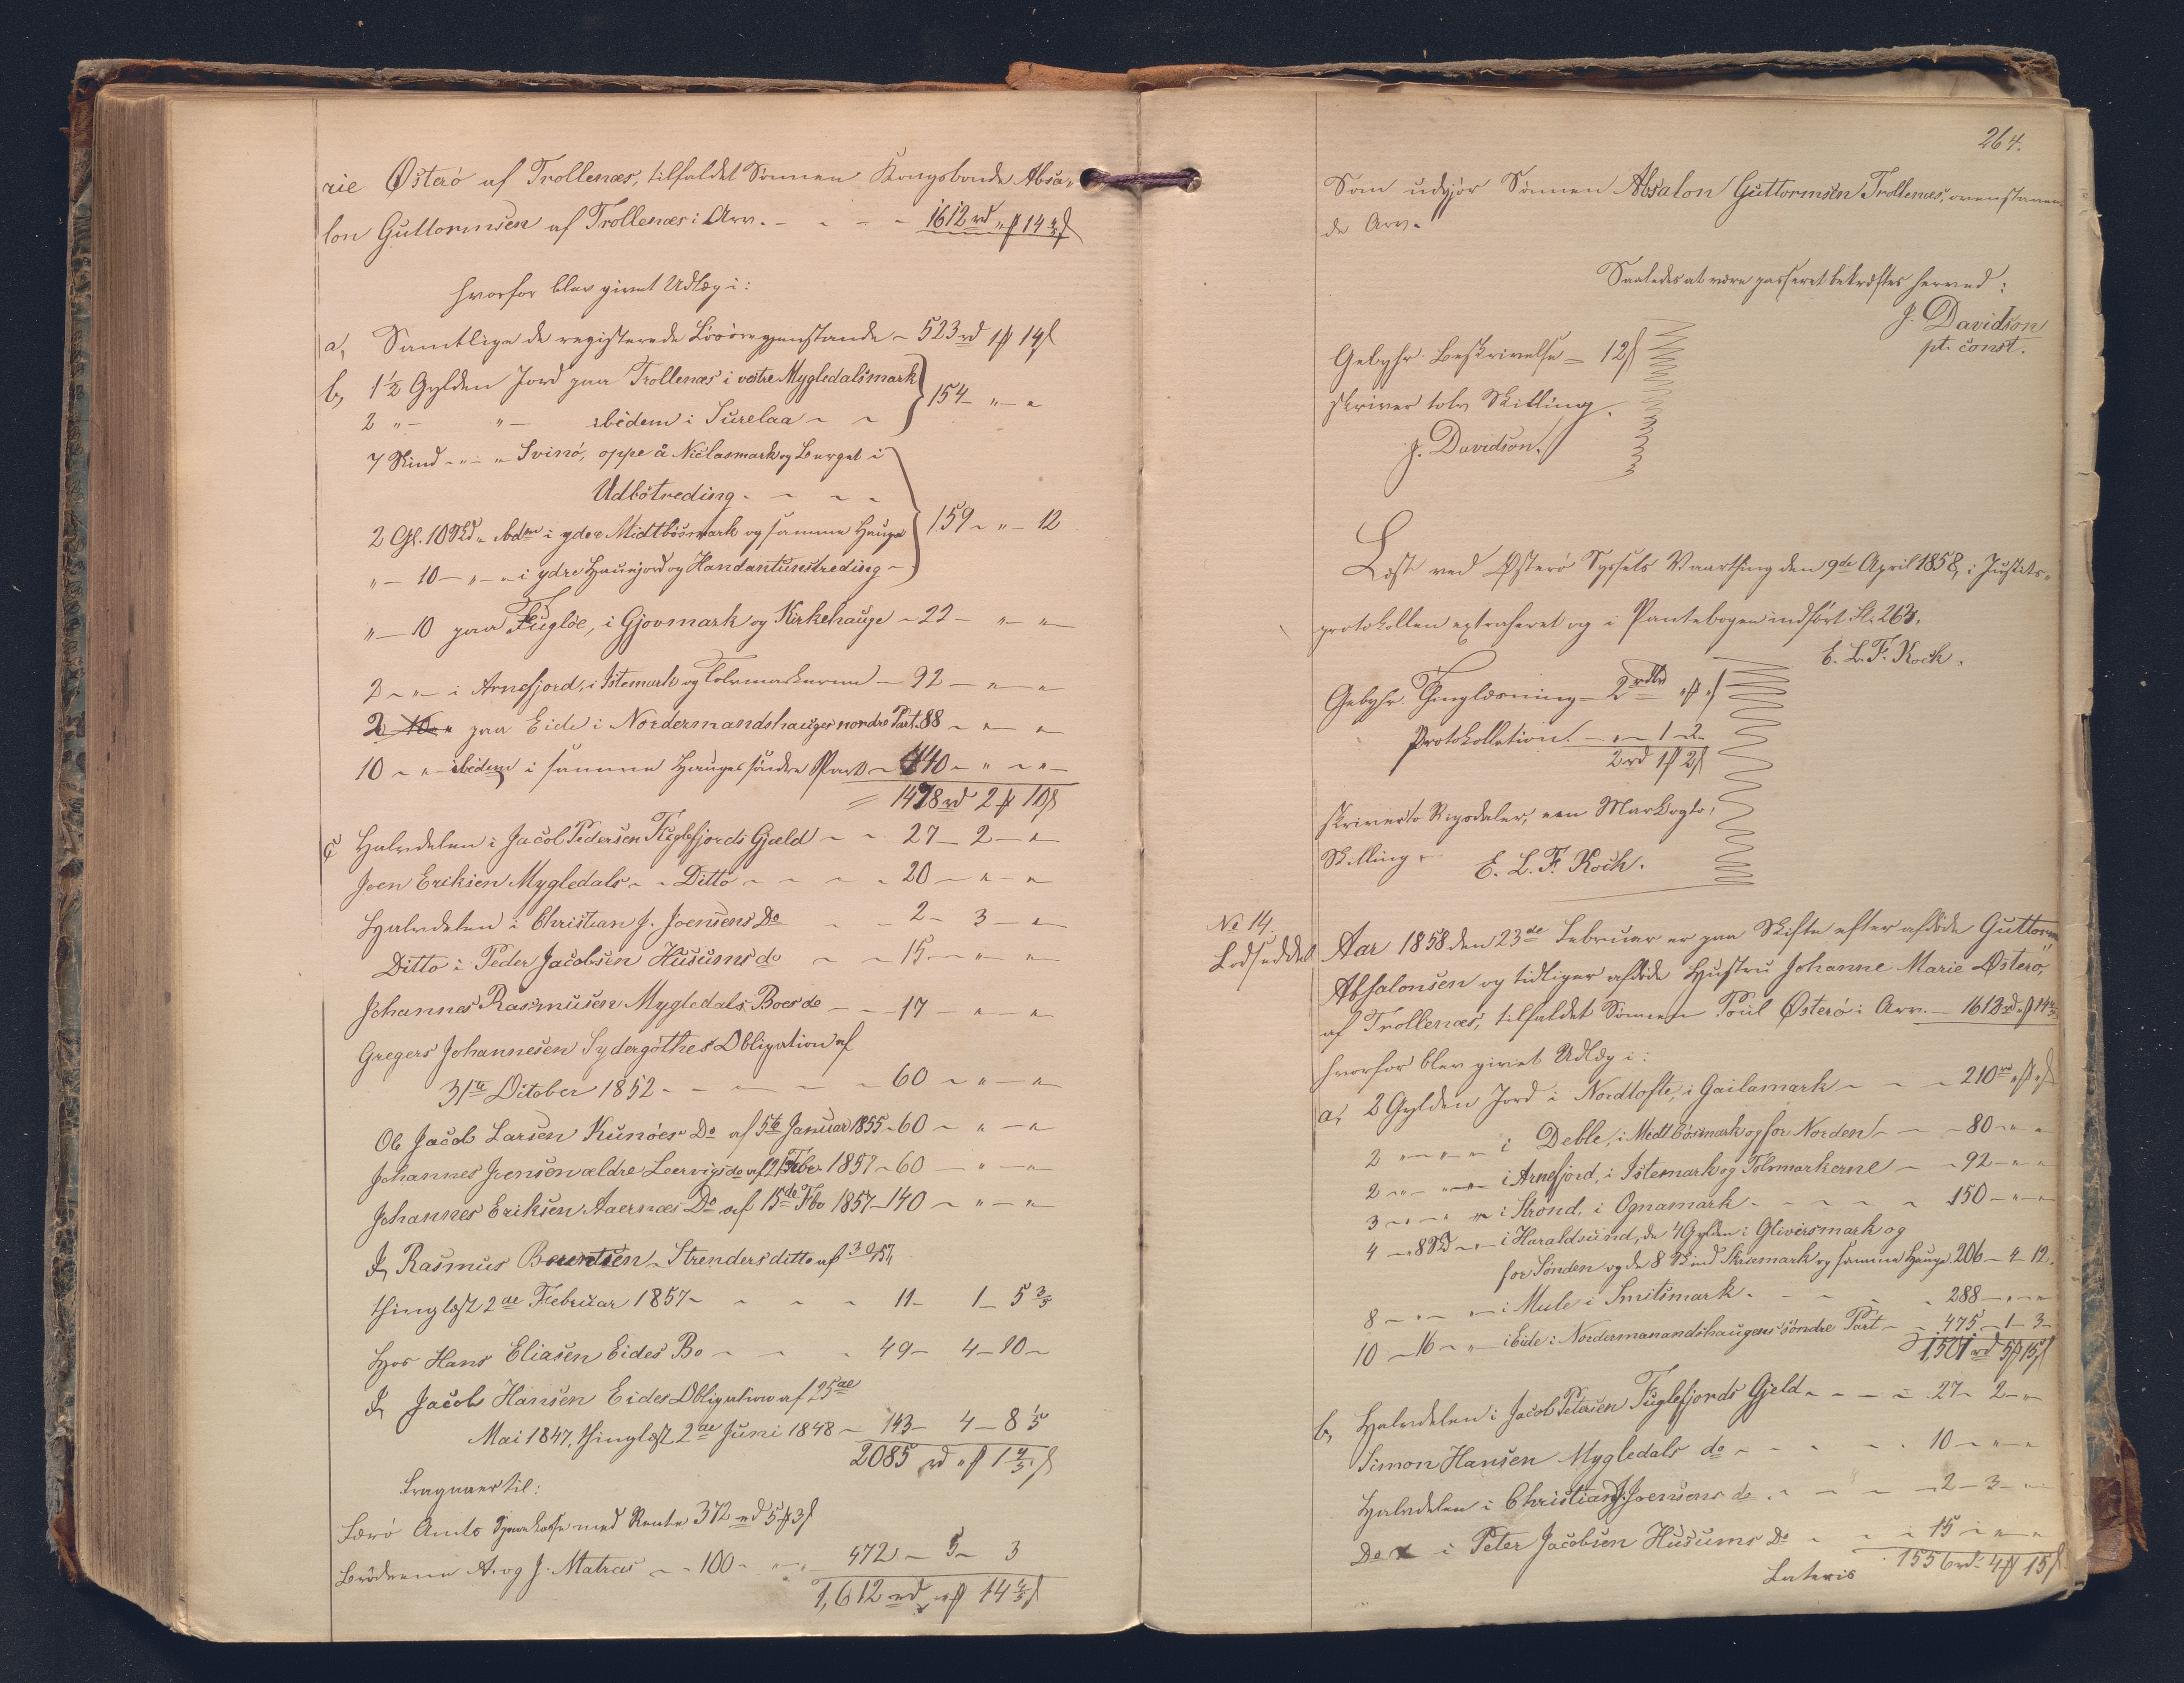 rie Østerö af Trollenæs, tilfaldet Sönnen Kongsbonde Absa-
lon Guttormsen af Trollenæs i Arv. - - - - 1612 rd „ ß 14 4/5 ß
hvorfor blev givet Udlæg i:
a, Samtlige de registerede Lösöregjenstande - 523 rd 1 ß 14 ß
b, 1 1/2 Gylden Jord paa Trollenæs i vestre Mygledalsmark
2 „ - „ - ibidem i Surelaa - - } 154 - „ - „
7 Skind - „ - „ Svinö, oppe å Niclasmark og Berget i
Udbötreding. - - -
2 Gl. 10 Skd „ ibdm i ydre Midtbösmark og samme Hauge } 159 - „ - 12
„ - 10 - „ - „ i ydre Haunjord og Handantunstreding -
„ - 10 paa Fuglöe, i Gjovmark og Kirkehauge - 22 - „ - „
2 - „ - i Arnefjord, i Istemark og Tolvmarkerne - 92 - „ - „
2 „ paa Eide i Nordermandshauges nordre Part. 88 - „ - „
10 - „ - ibidem i samme Hauges söndre Part - 440 - „ - „ -
= 1478 rd 2 ß 10 ß
c, Halvdelen i Jacob Pedersen Fuglefjords Gjæld - - 27 - 2 - „
Joen Eriksen Mygledals - - Ditto - - - - 20 - „ - „
Halvdelen i Christian J. Joensens Do - - 2 - 3 - „
Ditto i Peder Jacobsen Husums do - - 15 - „ - „
Johannes Rasmusen Mygledals Boes do - - - 17 - „ - „
Gregers Johannesen Sydergöthes Obligation af
31te October 1852 - - - - - 60 - „ - „
Ole Jacob Larsen Kunöes Do af 5te Januar 1855 - 60 - „ - „
Johannes Joensen ældre Leervigs do af 21 Febr 1857 - 60 - „ - „
Johannes Eriksen Aaernæs Do af 15de Fbr 1857 - 140 - „ - „
I, Rasmus Berentsen Strenders ditto af 30/1 57,
thinglæst 2de Februar 1857 - - - - 11 - 1 - 5 3/5
Hos Hans Eliasen Eides Bo - - - 49 - 4 - 10 -
I, Jacob Hansen Eides Obligation af 25de
Mai 1847, thinglæst 2de Juni 1848 - 143 - 4 - 8 1/5
2085 rd „ ß 1 4/5 ß
Fragaaer til:
Færö Amts Sparekasse med Rente 372 rd 5 ß 3 ß
Brödrene A. og J. Matras - - 100 - „ - „ 472 - 5 - 3
1,612 rd „ ß 14 4/5 ß
264.
Som udgjör Sönnen Absalon Guttormsen Trollenæs, ovenstaaen-
de Arv.
Saaledes at være passeret bekræftes herved:
J. Davidson
pt. const.
Gebyhr. Beskrivelse - 12 ß
skriver tolv Skilling.
J. Davidson.
Læst ved Österö Syssels Vaarthing den 9de April 1858, i Justits-
protokollen extraheret og i Pantebogen indfört Fl. 263.
E. L. F. Koch.
Gebyhr. Thinglæsning - 2 rdlr „ ß „ ß
Protokollation. - „ - 1 - 2
2 rd 1 ß 2 ß
skriver to Rigsdaler, een Mark og to,
Skilling.
E. L. F. Koch.
No 14.
Lodseddel
Aar 1858 den 23de Februar er paa Skifte efter afdöde Guttorm
Absalonsen og tidligere afdöde Hustru Johanne Marie Österö,
af Trollenæs, tilfaldet Sönnen Poul Österö i Arv. - 1612 rd „ ß 14 4/5
hvorfor blev givet Udlæg i:
a, 2 Gylden Jord i Nordtofte, i Gailamark - - - 210 rd „ ß „ ß
2 „ - „ - „ i Deble, i Midtbösmark og for Norden - - - 80 - „ - „
2 - „ - „ - „ i Arnefjord, i Istemark og Tolvmarkerne - - 92 - „ - „
3 - „ - „ i Strond, i Ognamark - - - - - 150 - „ - „
4 - „ 8 Skd - „ - i Haraldsund, de 4 Gylden i Gliversmark og
for Sönden og de 8 Skind Skuemark og samme Hauge 206 - 4 - 12.
8 - „ - „ - i Mule i Smitsmark - - - - 288 - „ - „
10 - 16 - „ - i Eide i Nordermanandshaugens söndre Part - - 475 - 1 - 3 -
1,501 rd 5 ß 15 ß
b, Halvdelen i Jacob Petersen Fuglefjords Gjeld - - - - 27 - 2 - „
Simon Hansen Mygledals do - - - - - 10 - „ - „
Halvdelen i Christian J. Joensens do - - - - 2 - 3 - „
Do i Peter Jacobsen Husums Do - - - 15 - „ - „
Lateris 1556 rd 4 ß 15 ß